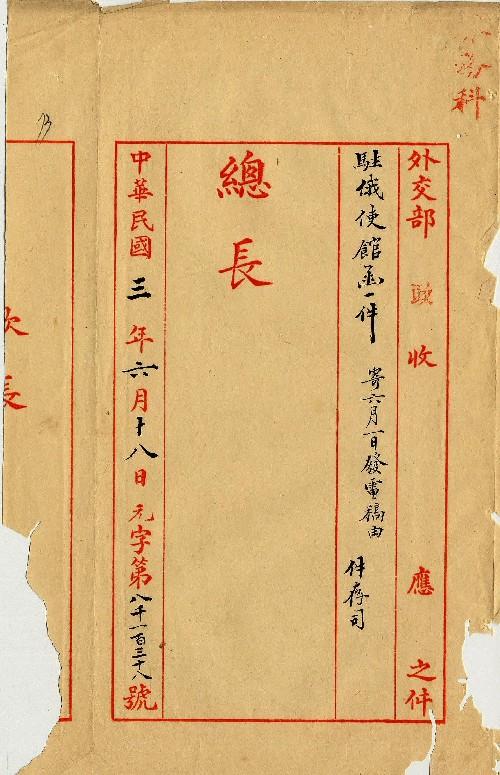 科
外交部 收 應 之件
駐俄使館函一件 寄六月一日發電稿由 件存司
總長
中華民國三年六月十八日元字第八千一百三十八號
次長